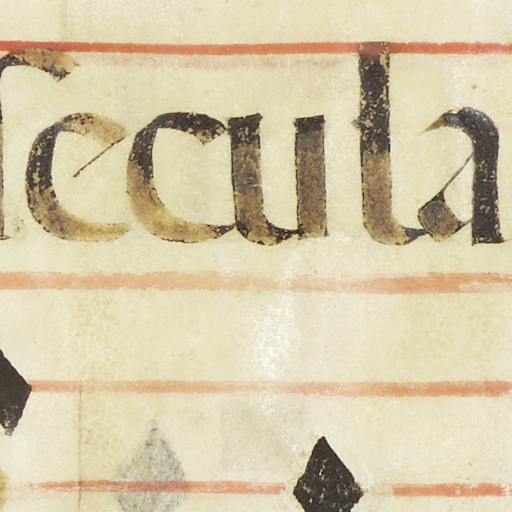 ſecula